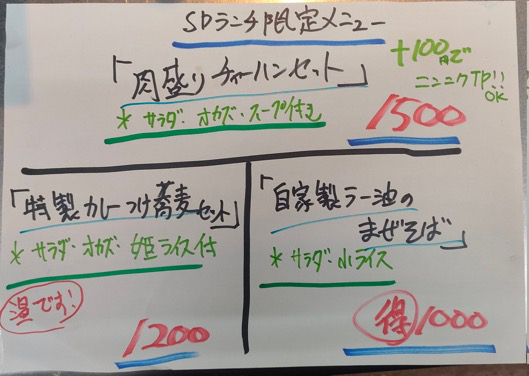 SDランチ限定メニュー
「肉盛りチャーハンセット」
+100円で
ニンニクTP!!
OK
* サラダ・オカズ・スープ付き
1500
「特製カレーつけ蕎麦セット」
* サラダ・オカズ・姫ライス付
温です!
1200
「自家製ラー油の
まぜそば」
* サラダ・小ライス
得 1000